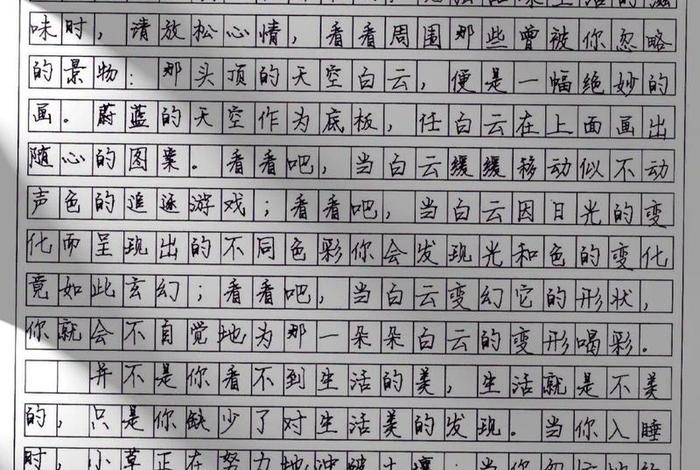 味时，请放松心情，看看周围那些曾被你忽略
的景物：那头顶的天空白云，便是一幅绝妙的
画．蔚蓝的天空作为底板，任白云在上面画出
随心的图案。看看吧，当白云缓缓移动似不动
声色的追逐游戏；看看吧，当白云因日光的变
化而呈现出的不同色彩你会发现光和色的变化
竟如此玄幻；看看吧，当白云变幻它的形状，
你就会不自觉地为那一朵朵白云的变形喝彩．
并不是你看不到生活的美，生活就是不美
的，只是你缺少了对生活美的发现．当你入睡
时，小草正在努力地冲破土壤；当你忽